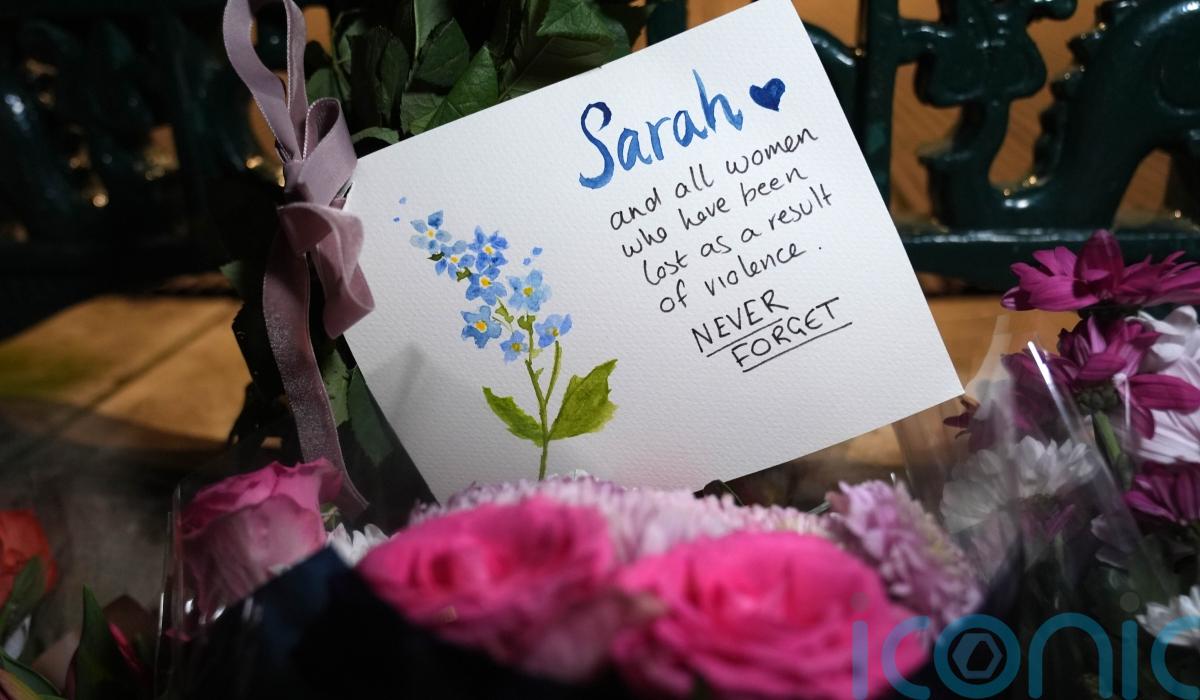 Sarah
and all women
who have been
lost as a result
of violence.
NEVER
FORGET
iconic